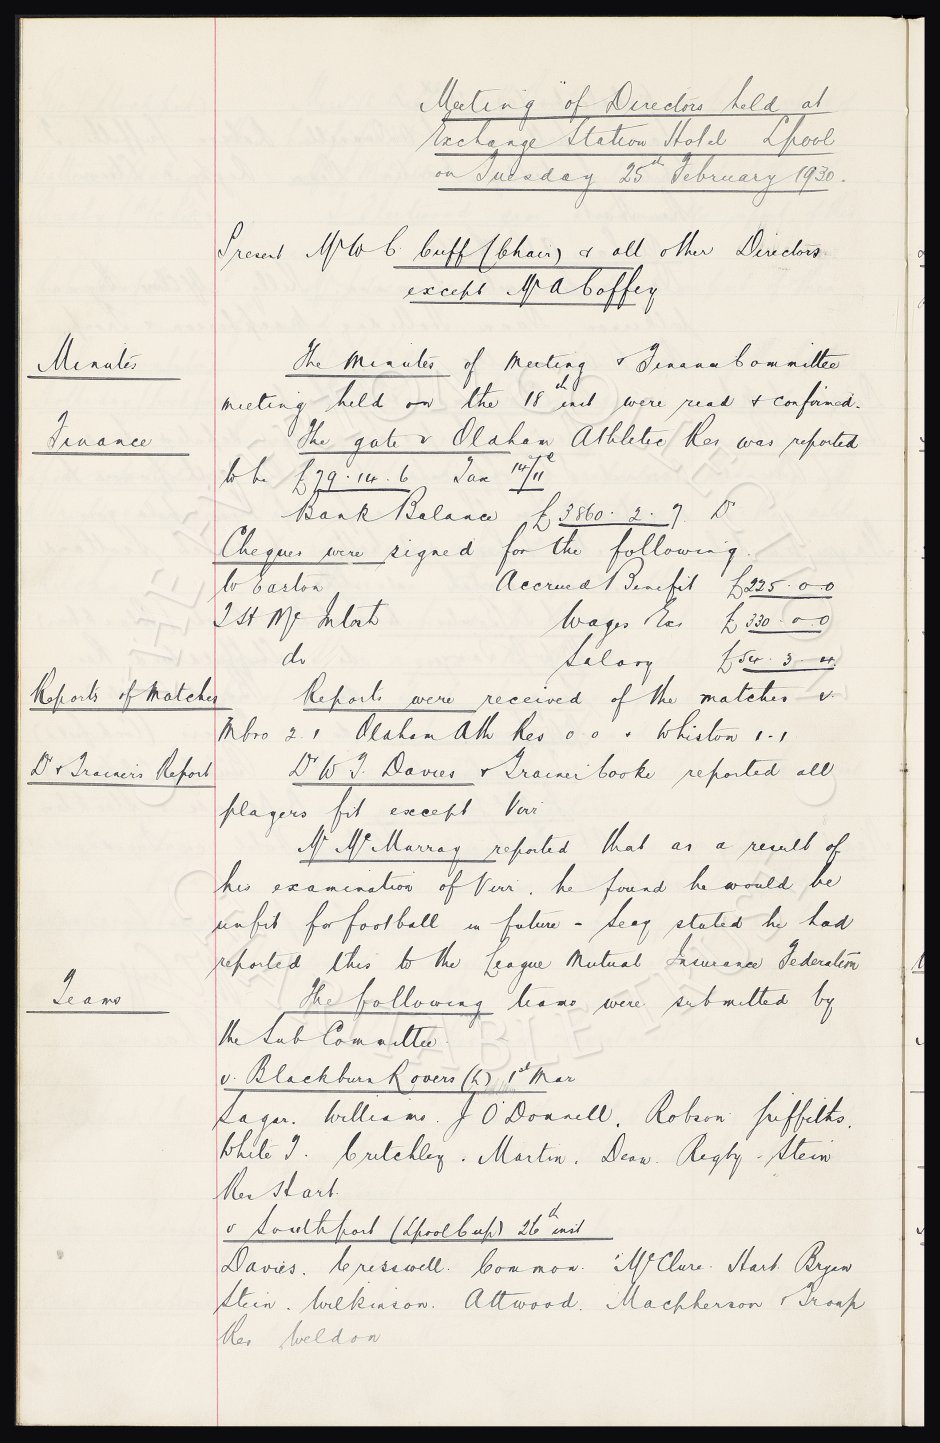 Meeting of Directors held at
Exchange Station Hotel Lpool
on Tuesday 25th February 1930.
Present Mr W C Cuff (Chair) & all other Directors
except Mr A Coffey
Minutes
The Minutes of Meeting & Finance Committee
meeting held on the 18th inst were read & confirmed.
Finance
The gate v Oldham Athletic Res was reported
to be £79.14.6 Tax 14/11
Bank Balance £3860.2.7 Dr
Cheques were signed for the following.
W Easton Accrued Benefit £225.0.0
T H Mc Intosh Wages Exs £330.0.0
do Salary £54.3.4
Reports of Matches
Reports were received of the matches v.
Mbro 2.1 Oldham Ath Res 0.0 v Whiston 1-1
Dr & Trainers Report
Dr W T. Davies & Trainer Cooke reported all
players fit except Virr
Mr McMurray reported that as a result of
his examination of Virr. he found he would be
unfit for football in future - Secy stated he had
reported this to the League Mutual Insurance Federation
Teams
The following teams were submitted by
the Sub Committee.
v. Blackburn Rovers (h) 1st Mar
Sagar. Williams. J O'Donnell. Robson. Griffiths.
White T. Critchley. Martin. Dean. Rigby. Stein
Res Hart.
v Southport (Lpool Cup) 26th inst
Davies. Cresswell. Common. McClure. Hart Bryan
Stein. Wilkinson. Attwood. Macpherson & Troup
Res Weldon
THE EVERTON COLLECTION
CHARITABLE TRUST